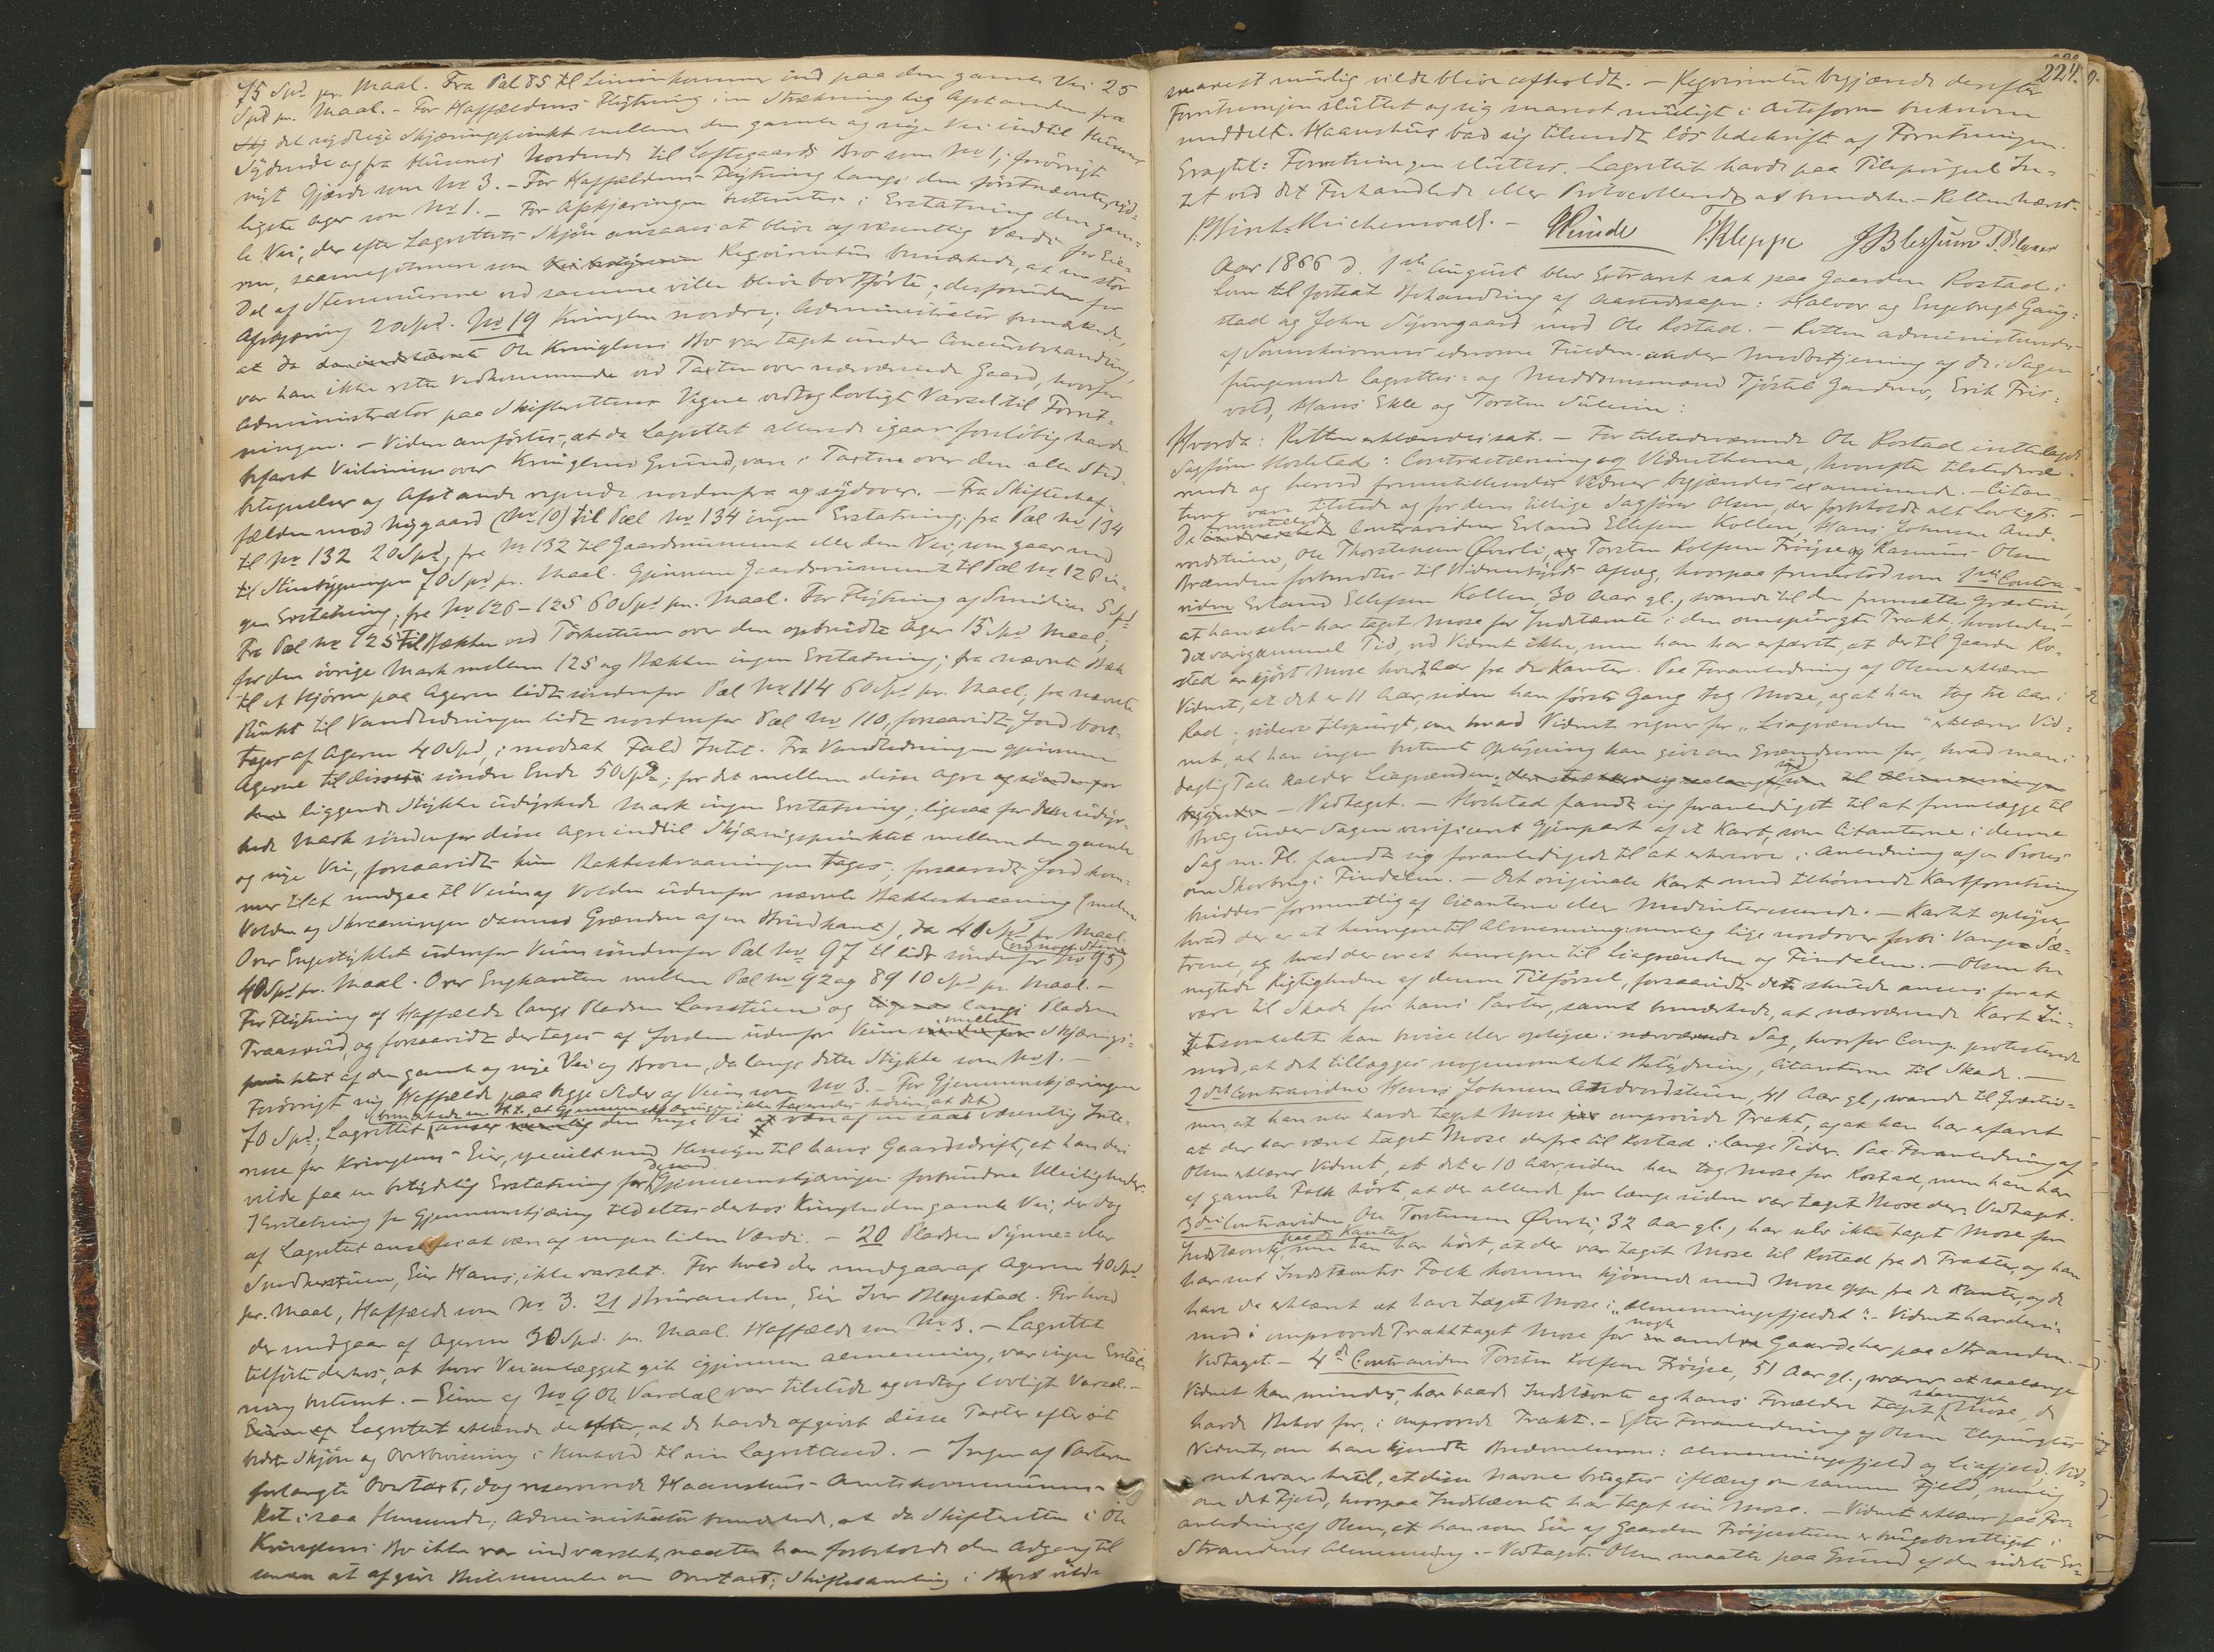 75 Spd. pr. Maal. Fra Pæl 85 til Linien kommer ind paa den gamle Vei 25
Spd. pr. Maal. - For Havfældens Flytning i en Strækning lig Afstanden fra
det sydlige Skjæringspunkt mellem den gamle og nye Vei indtil Husenes
Sydende og fra Husenes Nordende til Loftsgaards Bro som No 1; forövrigt
nyt Gjærde som No 3. - For Havfældens Flytning langs den förstnævnte syd-
ligste Ager som No 1. - For Afskjæringen bestemtes i Erstatning den gam-
le Vei, der efter Lagrettets Skjön ansaaes at blive af væsentlig Værdi for Eie-
ren, saameget mere som Reqvirentus bemærkede, at en stor
Del af Stenmurene ved samme ville blive bortförte; desforuden for
Afskjæring 20 Spd. No 19 Kringlen nordre; Administrator bemærkede,
at da Ole Kringlens Bo var taget under Concursbehandling,
var han ikke rette Vedkommende ved Taxten over nærværende Gaard, hvorfor
Administrator paa Skifterettens Vegne vedtog lovligt Varsel til Forret-
ningen. - Videre anförtes, at da Lagrettet allerede igaar foreløbig havde
befaret Veilinien over Kringlens Grund, vare i Taxten over den alle Sted-
betegnelser og Afstande regnede nordenfra og sydover. - Fra Skiftes haf-
fælden mod Nygaard (No 10) til Pæl No 134 ingen Erstatning; fra Pæl No 134
til No 132 20 Spd, fra No 132 til Gaardsrummet eller den Vei, som gaar ned
til Stenbygningen 70 Spd pr. Maal. Gjennem Gaardsrummet til Pæl No 126 in-
gen Erstatning, fra No 126-125 60 Spd pr. Maal. For Flytning af Smidien 5 Spd
Fra Pæl No 125 til Bækken ved Törkestuen over den opbrudte Ager 15 Spd Maal,
for den övrige Mark mellem 125 og Bækken ingen Erstatning; fra nævnte Bæk
til et Hjörne paa Ageren lidt söndenfor Pæl No 114 60 Spd pr. Maal; fra nævnte
Punkt til Vandledningen lidt nordenfor Pæl No 110, forsaavidt Jord bort-
tages af Ageren 40 Spd, i modsat Fald Intet. Fra Vandledningen gjennem
Agerne til söndre Ende 50 Spd; for det mellem disse Agre
liggende Stykke udyrkede Mark ingen Erstatning; ligesaa for den udyr-
kede Mark söndenfor disse Agre indtil Skjæringspunktet mellem den gamle
og nye Vei, forsaavidt kun Bakkeskraaningen tages; forsaavidt Jord kom-
mer til at medgaa til Veien og Volden udenfor nævnte Bakkeskraaning (mellem
Volden og Skraaningen dannes Grændsen af en Brudkant), da 40 Spd pr Maal.
Over Engestykket udenfor Veien söndenfor Pæl No 97 til lidt söndenfor No 95
40 Spd pr. Maal. Over Engkanten mellem Pæl No 92 og 89 10 Spd pr. Maal. -
For Flytning af Havfælde langs Pladsen Larsstuen og langs Pladsen
Traasrud, og forsaavidt der tages af Jorden udenfor Veien mellem Skjærings-
punktet af den gamle og nye Vei og Broen, da langs dette Stykke som No 1. -
Forövrigt ny Havfælde paa begge Sider af Veien som No 3. - For Gjennemskjæringen
70 Spd; Lagrettet bemærkede m. H. t. at Gjennemskjæringen ikke taxeredes höiere, at det
anser den nye Vei at være af en saa væsentlig Inte-
resse for Kringlens Eier, specielt med Hensyn til hans Gaardsdrift, at han deri
vilde faa en betydelig Erstatning for de med Gjennemskjæringen forbundne Uleiligheder.
I Erstatning for Gjennemskjæring tildeltes derhos Kringlen den gamle Vei, der dog
af Lagrettet ansees at være af ingen liden Værdi. - 20 Pladsen Synne- eller
Snedkerstuen, Eier Hans, ikke varslet. For hvad der medgaar af Ageren 40 Spd
pr. Maal, Havfælde som No 3. 21 Muranden, Eier Iver Megestad. For hvad
der medgaar af Ageren 30 Spd. pr. Maal. Havfælde som No 3. - Lagrettet
tilförte derhos, at hvor Veianlægget gik igjennem Almenning, var ingen Erstat-
ning bestemt. - Eieren af No 9 Ole Vardal var tilstede og vedtog lovligt Varsel. -
Lagrettet erklærede derefter, at de havde afgivet disse Taxter efter sit
bedste Skjön og Overbevisning i Henhold til sin Lagretsed. - Ingen af Parterne
forlangte Overtaxt, dog reserverede Haanshus Amtskommunen
Ret i saa Henseende; Administrator bemærkede, at da Skifteretten i Ole
Kringlens Bo ikke var indvarslet, maatte han forbeholde den Adgang til
senere at afgive Bestemmelse om Overtaxt; Skiftesamling i Boet vilde
224.
snarest muligt vilde blive afholdt. - Reqvirenten begjærede derefter
Forretningen sluttet og sig snarest muligt i Actsform beskreven
meddelt. Haanshus bad sig tilsendt lös Udskrift af Forretningen.
Eragtet: Forretningen sluttes. Lagrettet havde paa Tilspörgsel In-
tet ved det Forhandlede eller Protocollerede at bemærke. - Retten hævet.
P. Wint. Reichenwald. - Kleppe
Aar 1866 d. 1ste August blev Extraret sat paa Gaarden Rostad i
Lom til fortsat Behandling af Aastedssagen: Halvor og Engebregt Gaug-
stad og John Nyorgaard mod Ole Rostad. - Retten administreredes
af Sorenskriverens edsvorne Fuldm. under Medbetjening af de i Sagen
fungerende Lagrettes- og Meddomsmænd Tjöstel Gardmo, Erik Fris-
vold, Hans Ekle og Torsten Suleim:
Hvorda: Retten erklæredes sat. - For tilstedeværende Ole Rostad indtelagde
Sagförer Horlstad: Contrastævning og Vidnethema, hvorefter tilstedevæ-
rende og herved fremstillende Vidner begjæredes examinerede. - Citan-
terne vare tilstede og for dem tillige Sagförer Olsen, der forbeholdt alt Lovligt. -
De fremstillede Contravidner Erland Ellefsen Kollen, Hans Johnsen And-
vordstuen, Ole Thorstensen Øverli, Torsten Rolfsen Fröyse og Rasmus Olsen
Brænden formantes til Vidnesbyrds Aflæg, hvorpaa fremstod som 1ste Contra-
vidne Erland Ellefsen Kollen, 30 Aar gl., svarede til den fremsatte Qvæstion,
at han selv har taget Mose for Indstævnte i den omspurgte Trakt; hvorledes
det var i gammel Tid, ved Vidnet ikke, men han har erfaret, at der til Gaarden Ro-
stad er kjört Mose hvert Aar fra de Kanter. Paa Foranledning af Olsen erklærer
Vidnet, at det er 11 Aar, siden han förste Gang tog Mose, og at han tog tre Aar i
Rad; videre tilspurgt, om hvad Vidnet regner for "Liagrænden" erklærer Vid-
net, at han ingen bestemt Oplysning kan give om Grændserne for, hvad man i
daglig Tale kalder Liagrænden.
- Vedtaget. - Horlstad fandt sig foranlediget til at fremlægge til
Brug under Sagen verificeret Gjenpart af et Kart, som Citanterne i denne
Sag m. Fl. fandt sig foranledigede til at erhverve i Anledning af en Proces
om Skovbrug i Findalen. - Det originale Kart med tilhörende Kartforretning
beviddes formentlig af Citanterne eller Medinteresserede. - Kartet oplyser,
hvad der er at henregne til Almenning: nemlig lige nordover forbi Vangen Sæ-
trene, og hvad der er at henregne til Liagrænden og Findalen. - Olsen be-
negtede Rigtigheden af denne Tilförsel, forsaavidt det skulde ansees for at
være til Skade for hans Parter, samt bemærkede, at nærværende Kart In-
tetsomhelst kan bevise eller oplyse i nærværende Sag, hvorfor Comp. protesterede
mod, at det tillægges nogensomhelst Betydning, Citanterne til Skade. -
2det Contravidne Hans Johnsen Andvordstuen, 41 Aar gl., svarede til Qvæstio-
nen, at han selv havde taget Mose i omprovede Trakt, og at han har erfaret
at der har været taget Mose derfra til Rostad i lange Tider. Paa Foranledning af
Olsen erklærer Vidnet, at det er 10 Aar, siden han tog Mose for Rostad, men han har
af gamle Folk hört, at der allerede for længe siden var taget Mose der. Vedtaget.
3die Contravidne, Ole Torstensen Øverli, 32 Aar gl., har selv ikke taget Mose for
Indstævnte paa de Kanter, men han har hört, at der var taget Mose til Rostad fra de Trakter, og han
har seet Indstævntes Folk komme kjörende med Mose oppe fra de Kanter, og de
have da erklæret at have taget Mose i "Almenningsfjeldet". - Vidnet har deri-
mod i omprovede Trakt taget Mose for nogle andre Gaardeher paa Stranden. -
Vedtaget. - 4de Contravidne Torsten Rolfsen Fröyse, 51 Aar gl., svarer at saalænge
Vidnet kan mindes, har baade Indstævnte og hans Forældre taget saameget Mose, de
havde Behov for, i omprovede Trakt. - Efter Foranledning af Olsen tilspurgtes
Vidnet, om han kjendte Benævnelserne: Almenningsfjeld og Liafjeld, Vid-
net svarer hertil, at disse Navne brugtes iflæng om samme Fjeld, nemlig
om det Fjeld, hvorpaa Indstævnte har taget sin Mose. - Vidnet erklærer paa For-
anledning af Olsen, at han som Eier af Gaarden Fröysestuen er brugsberettiget i
Strandens Almenning. - Vedtaget. Olsen maatte paa Grund af den sidste Er-